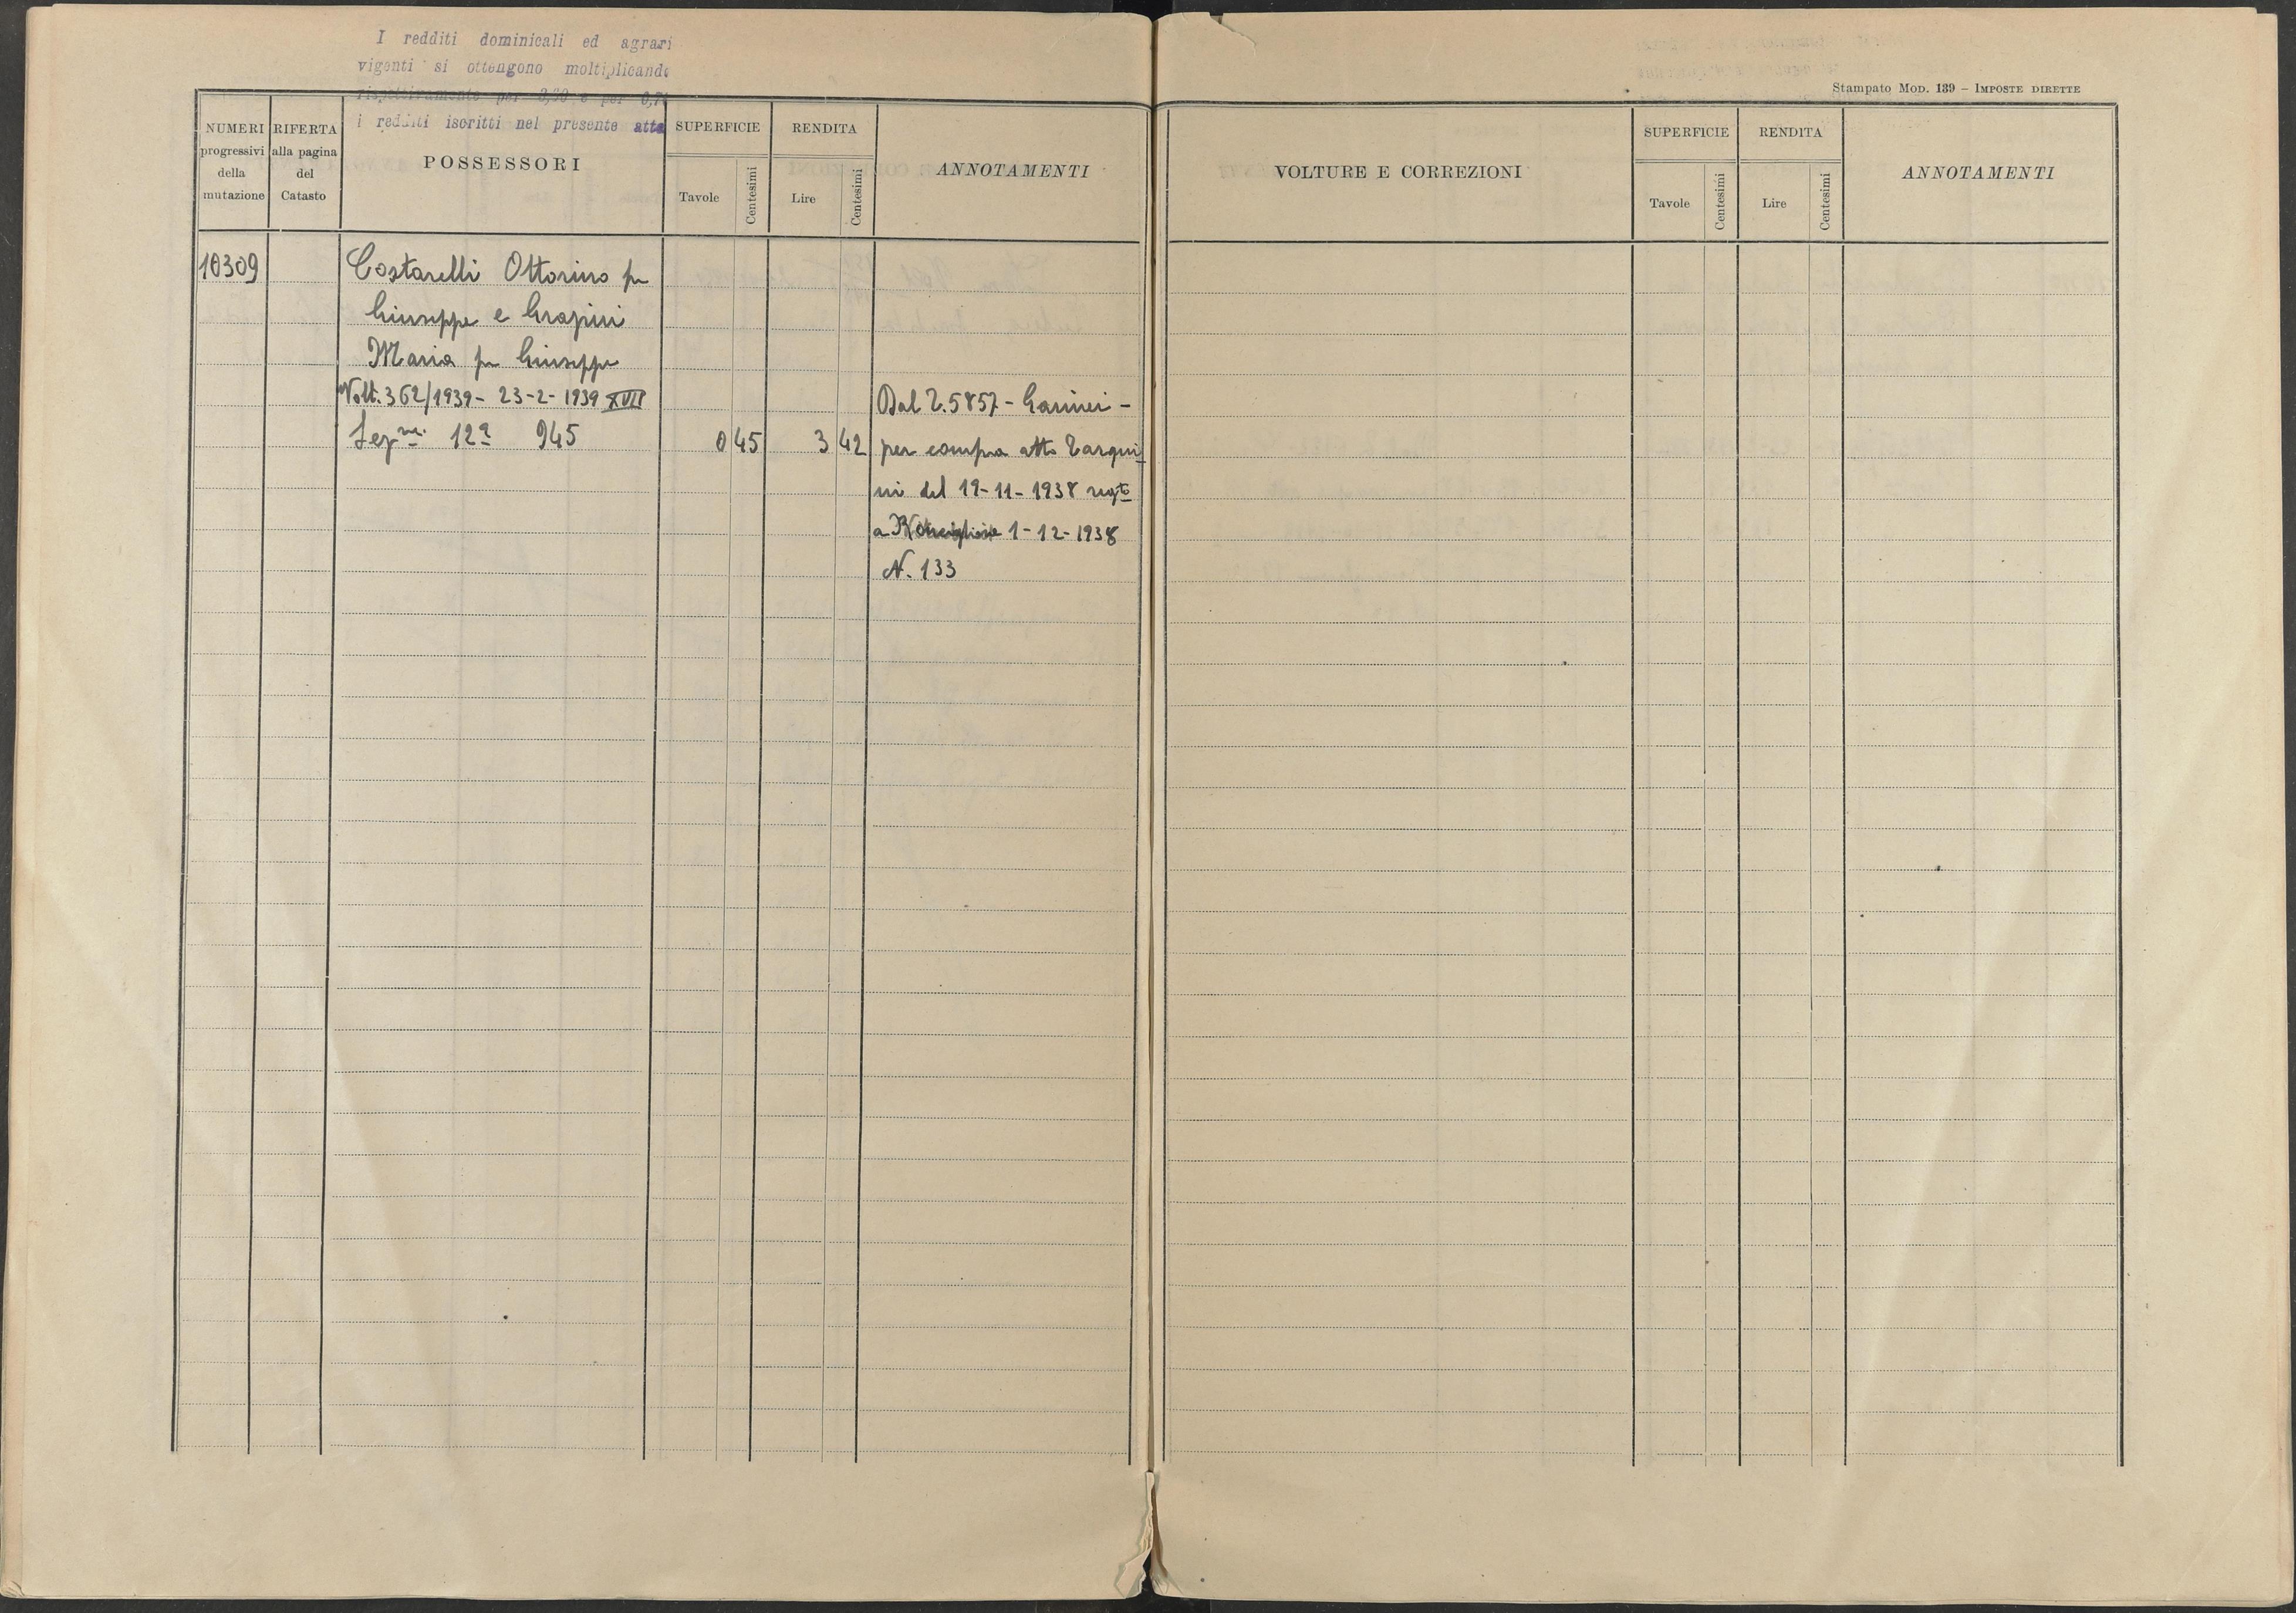 I redditi dominicali ed agrari
vigenti si ottengono moltiplicando
rispettivamente per e per
i redditi iscritti nel presente atto
Stampato Mod. 139 – Imposte dirette
NUMERI progressivi della mutazione
RIFERTA alla pagina del Catasto
POSSESSORI
SUPERFICIE
Tavole
Centesimi
RENDITA
Lire
Centesimi
ANNOTAMENTI
VOLTURE E CORREZIONI
SUPERFICIE
Tavole
Centesimi
RENDITA
Lire
Centesimi
ANNOTAMENTI
10309 Costarelli Ottorino fu
Giuseppe e Grapini
Maria fu Giuseppe
Volt. 362/1939 - 23-2-1939 XVII
Sezne. 12a 945 0 45 3 42
Dal 2.5857 -
per compra atto Tarqui-
ni del 19-11-1938 regto
a 1-12-1938
N. 133